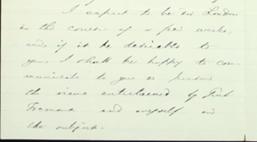 I expect to be in London
in the course of a few weeks,
and if it be desirable to
you I shall be happy to com-
municate to you in person
the views entertained by
and myself on
the subject.